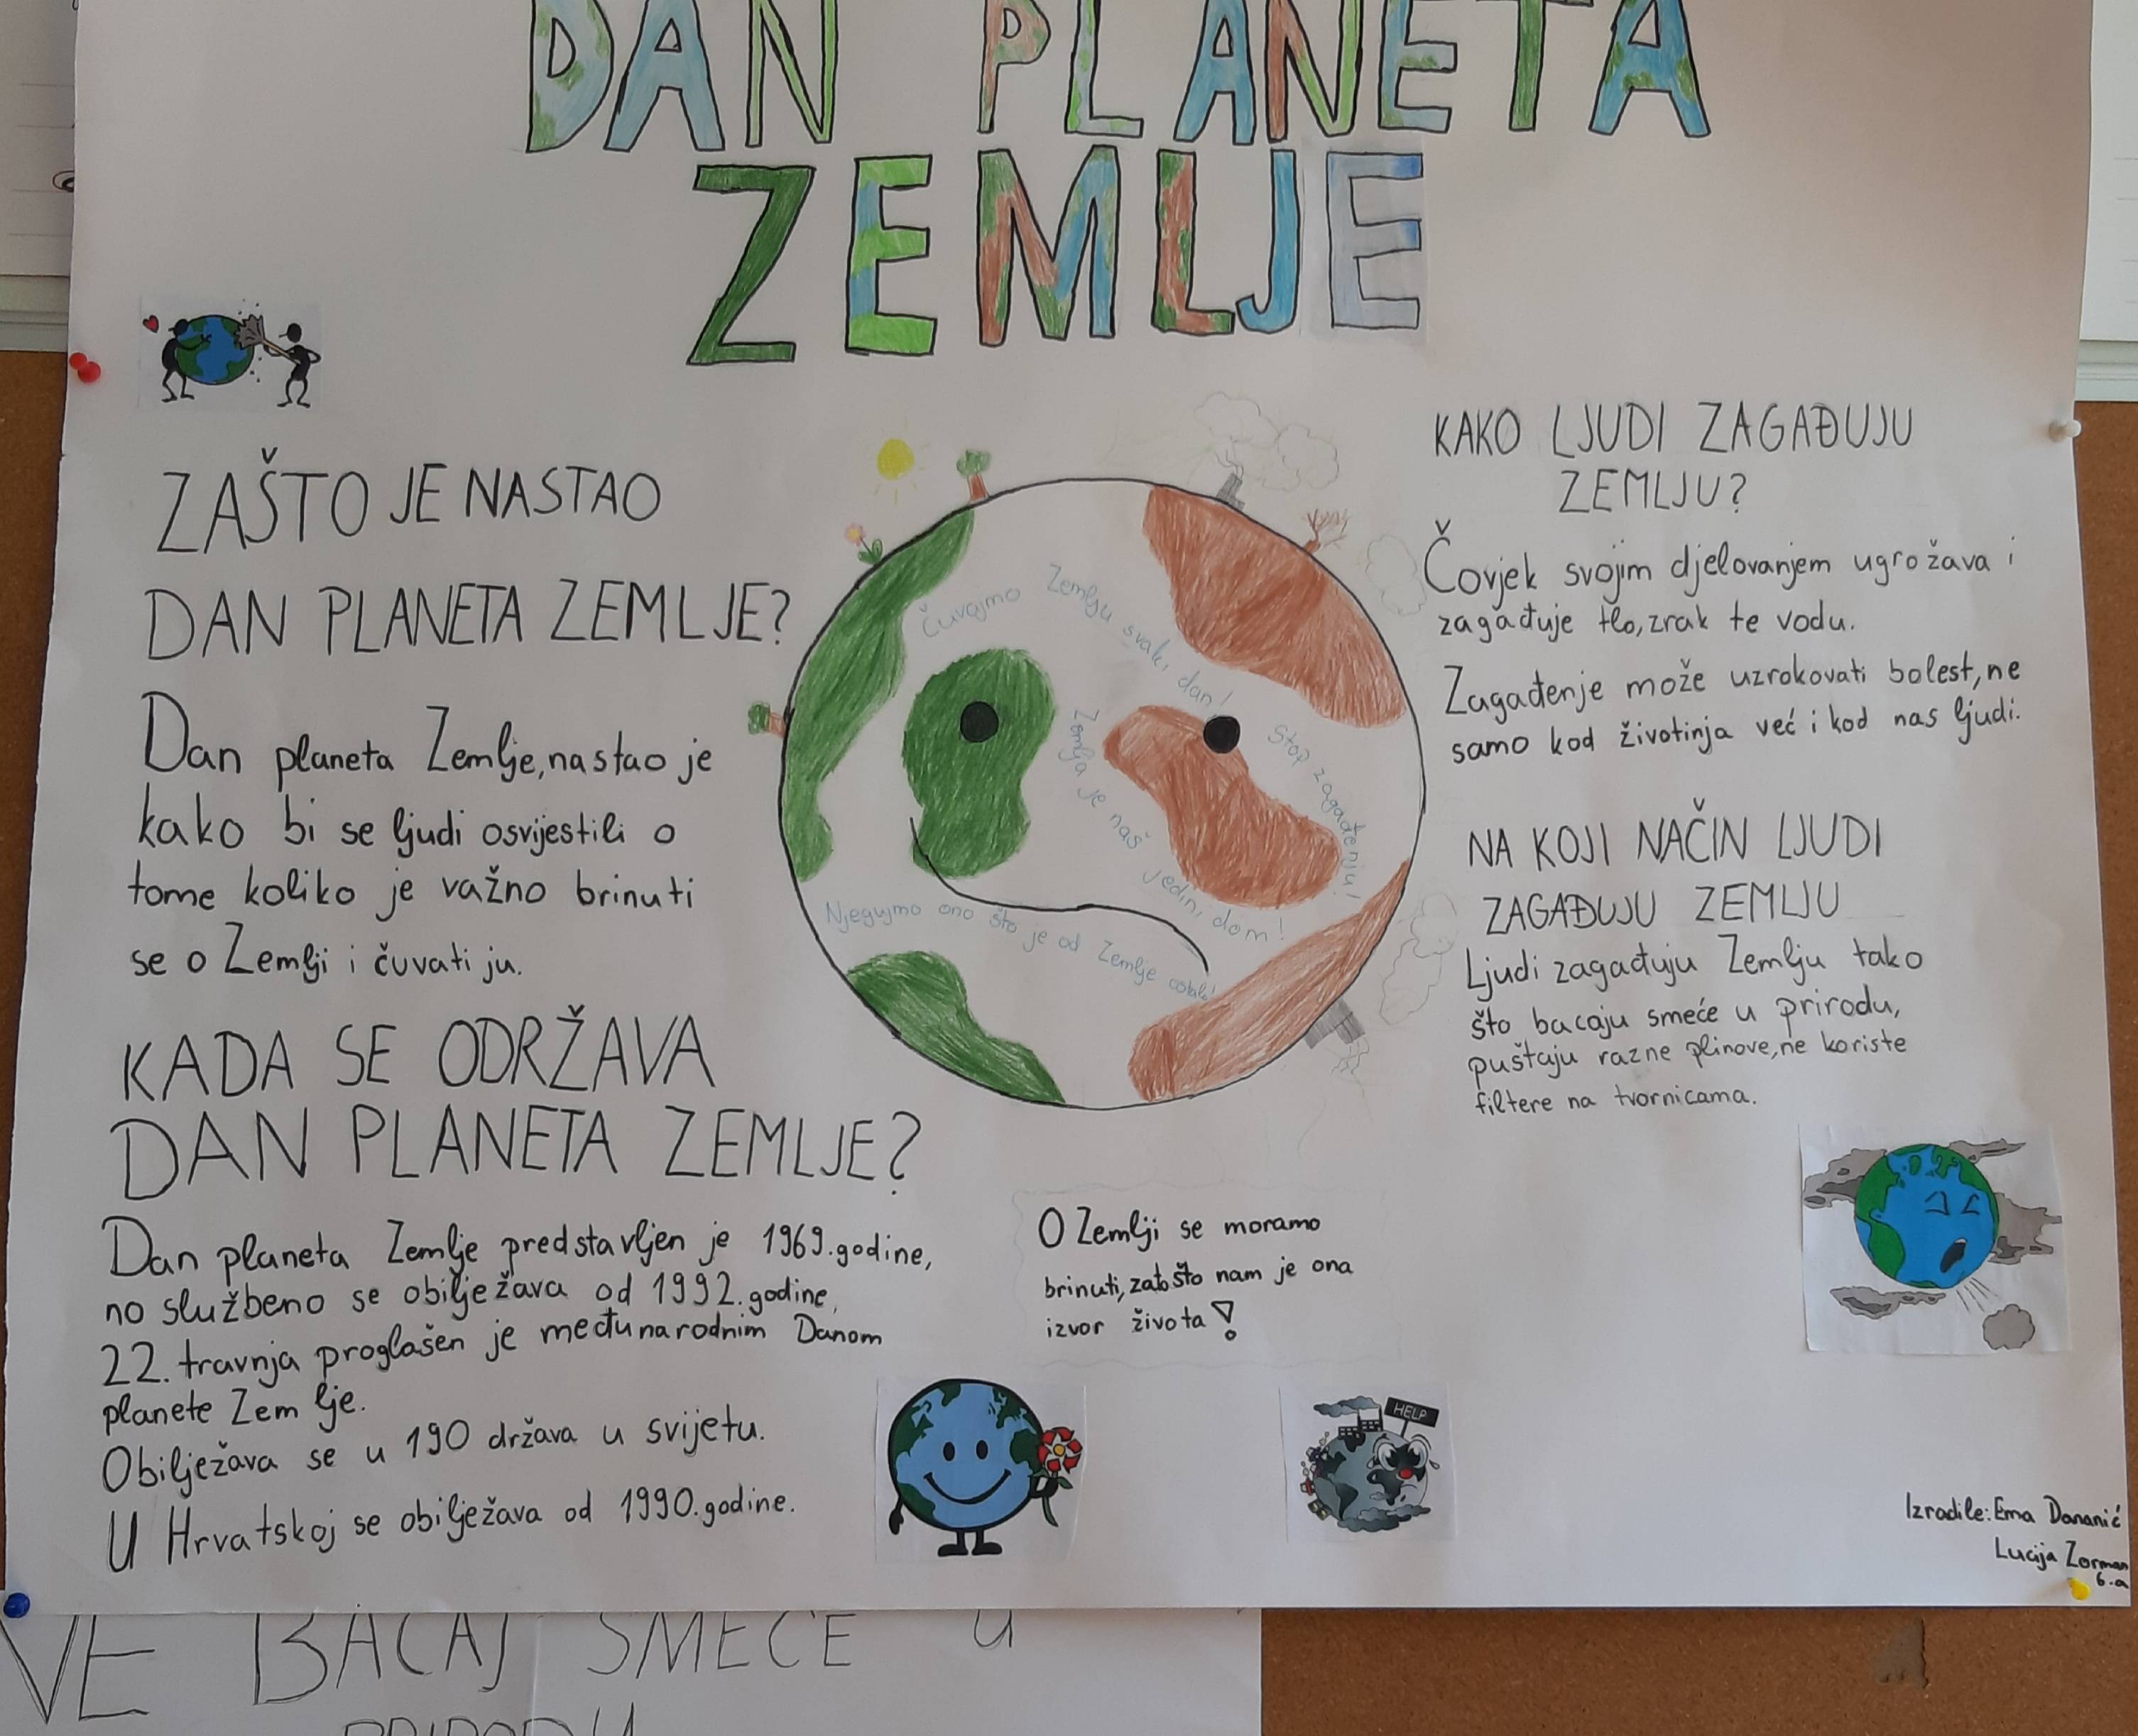 DAN PLANETA
ZEMLJE
ZAŠTO JE NASTAO
DAN PLANETA ZEMLJE?
Dan planeta Zemlje, nastao je
kako bi se ljudi osvijestili o
tome koliko je važno brinuti
se o Zemlji i čuvati ju.
KADA SE ODRŽAVA
DAN PLANETA ZEMLJE?
Dan planeta Zemlje predstavljen je 1969. godine,
no službeno se obilježava od 1992. godine,
22. travnja proglašen je međunarodnim Danom
planete Zemlje.
Obilježava se u 190 država u svijetu.
U Hrvatskoj se obilježava od 1990. godine.
Čuvajmo Zemlju svaki dan!
Zemlja je naš jedini dom!
Stop zagađenju!
Njegujmo ono što je od Zemlje ostalo!
O Zemlji se moramo
brinuti, zato što nam je ona
izvor života!
HELP
KAKO LJUDI ZAGAĐUJU
ZEMLJU?
Čovjek svojim djelovanjem ugrožava i
zagađuje tlo, zrak te vodu.
Zagađenje može uzrokovati bolest, ne
samo kod životinja već i kod nas ljudi.
NA KOJI NAČIN LJUDI
ZAGAĐUJU ZEMLJU
Ljudi zagađuju Zemlju tako
što bacaju smeće u prirodu,
puštaju razne plinove, ne koriste
filtere na tvornicama.
Izradile: Ema Dananić
Lucija Zorman
6.a
BACAJ SMEĆE U
PRIRODU